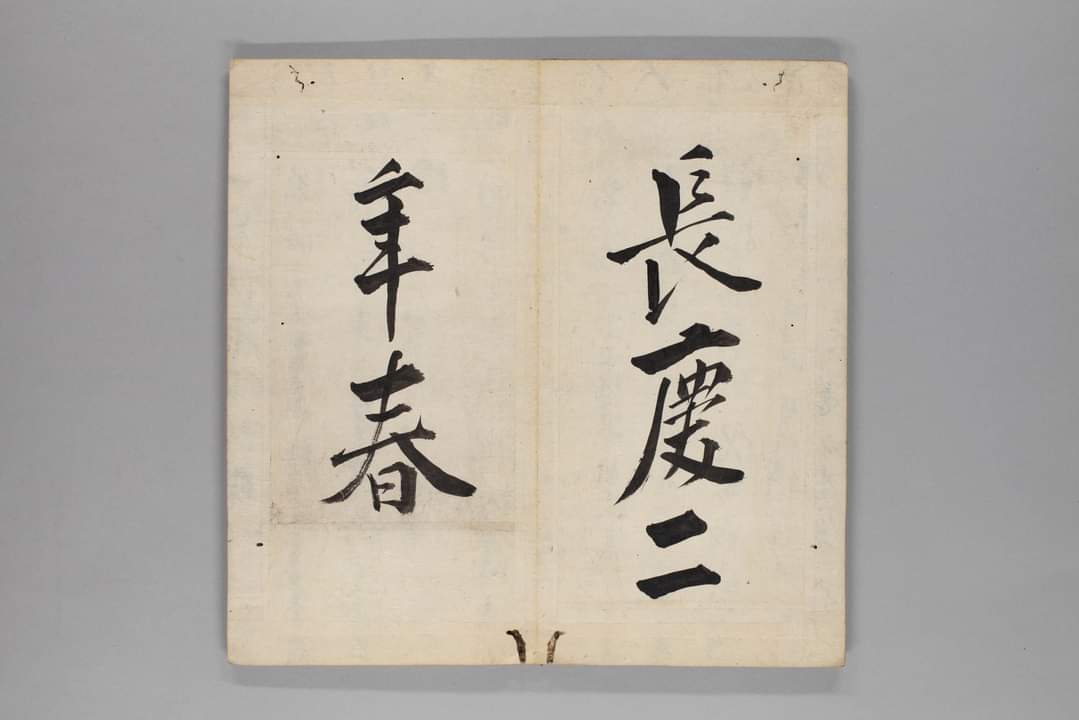 長慶二
年春